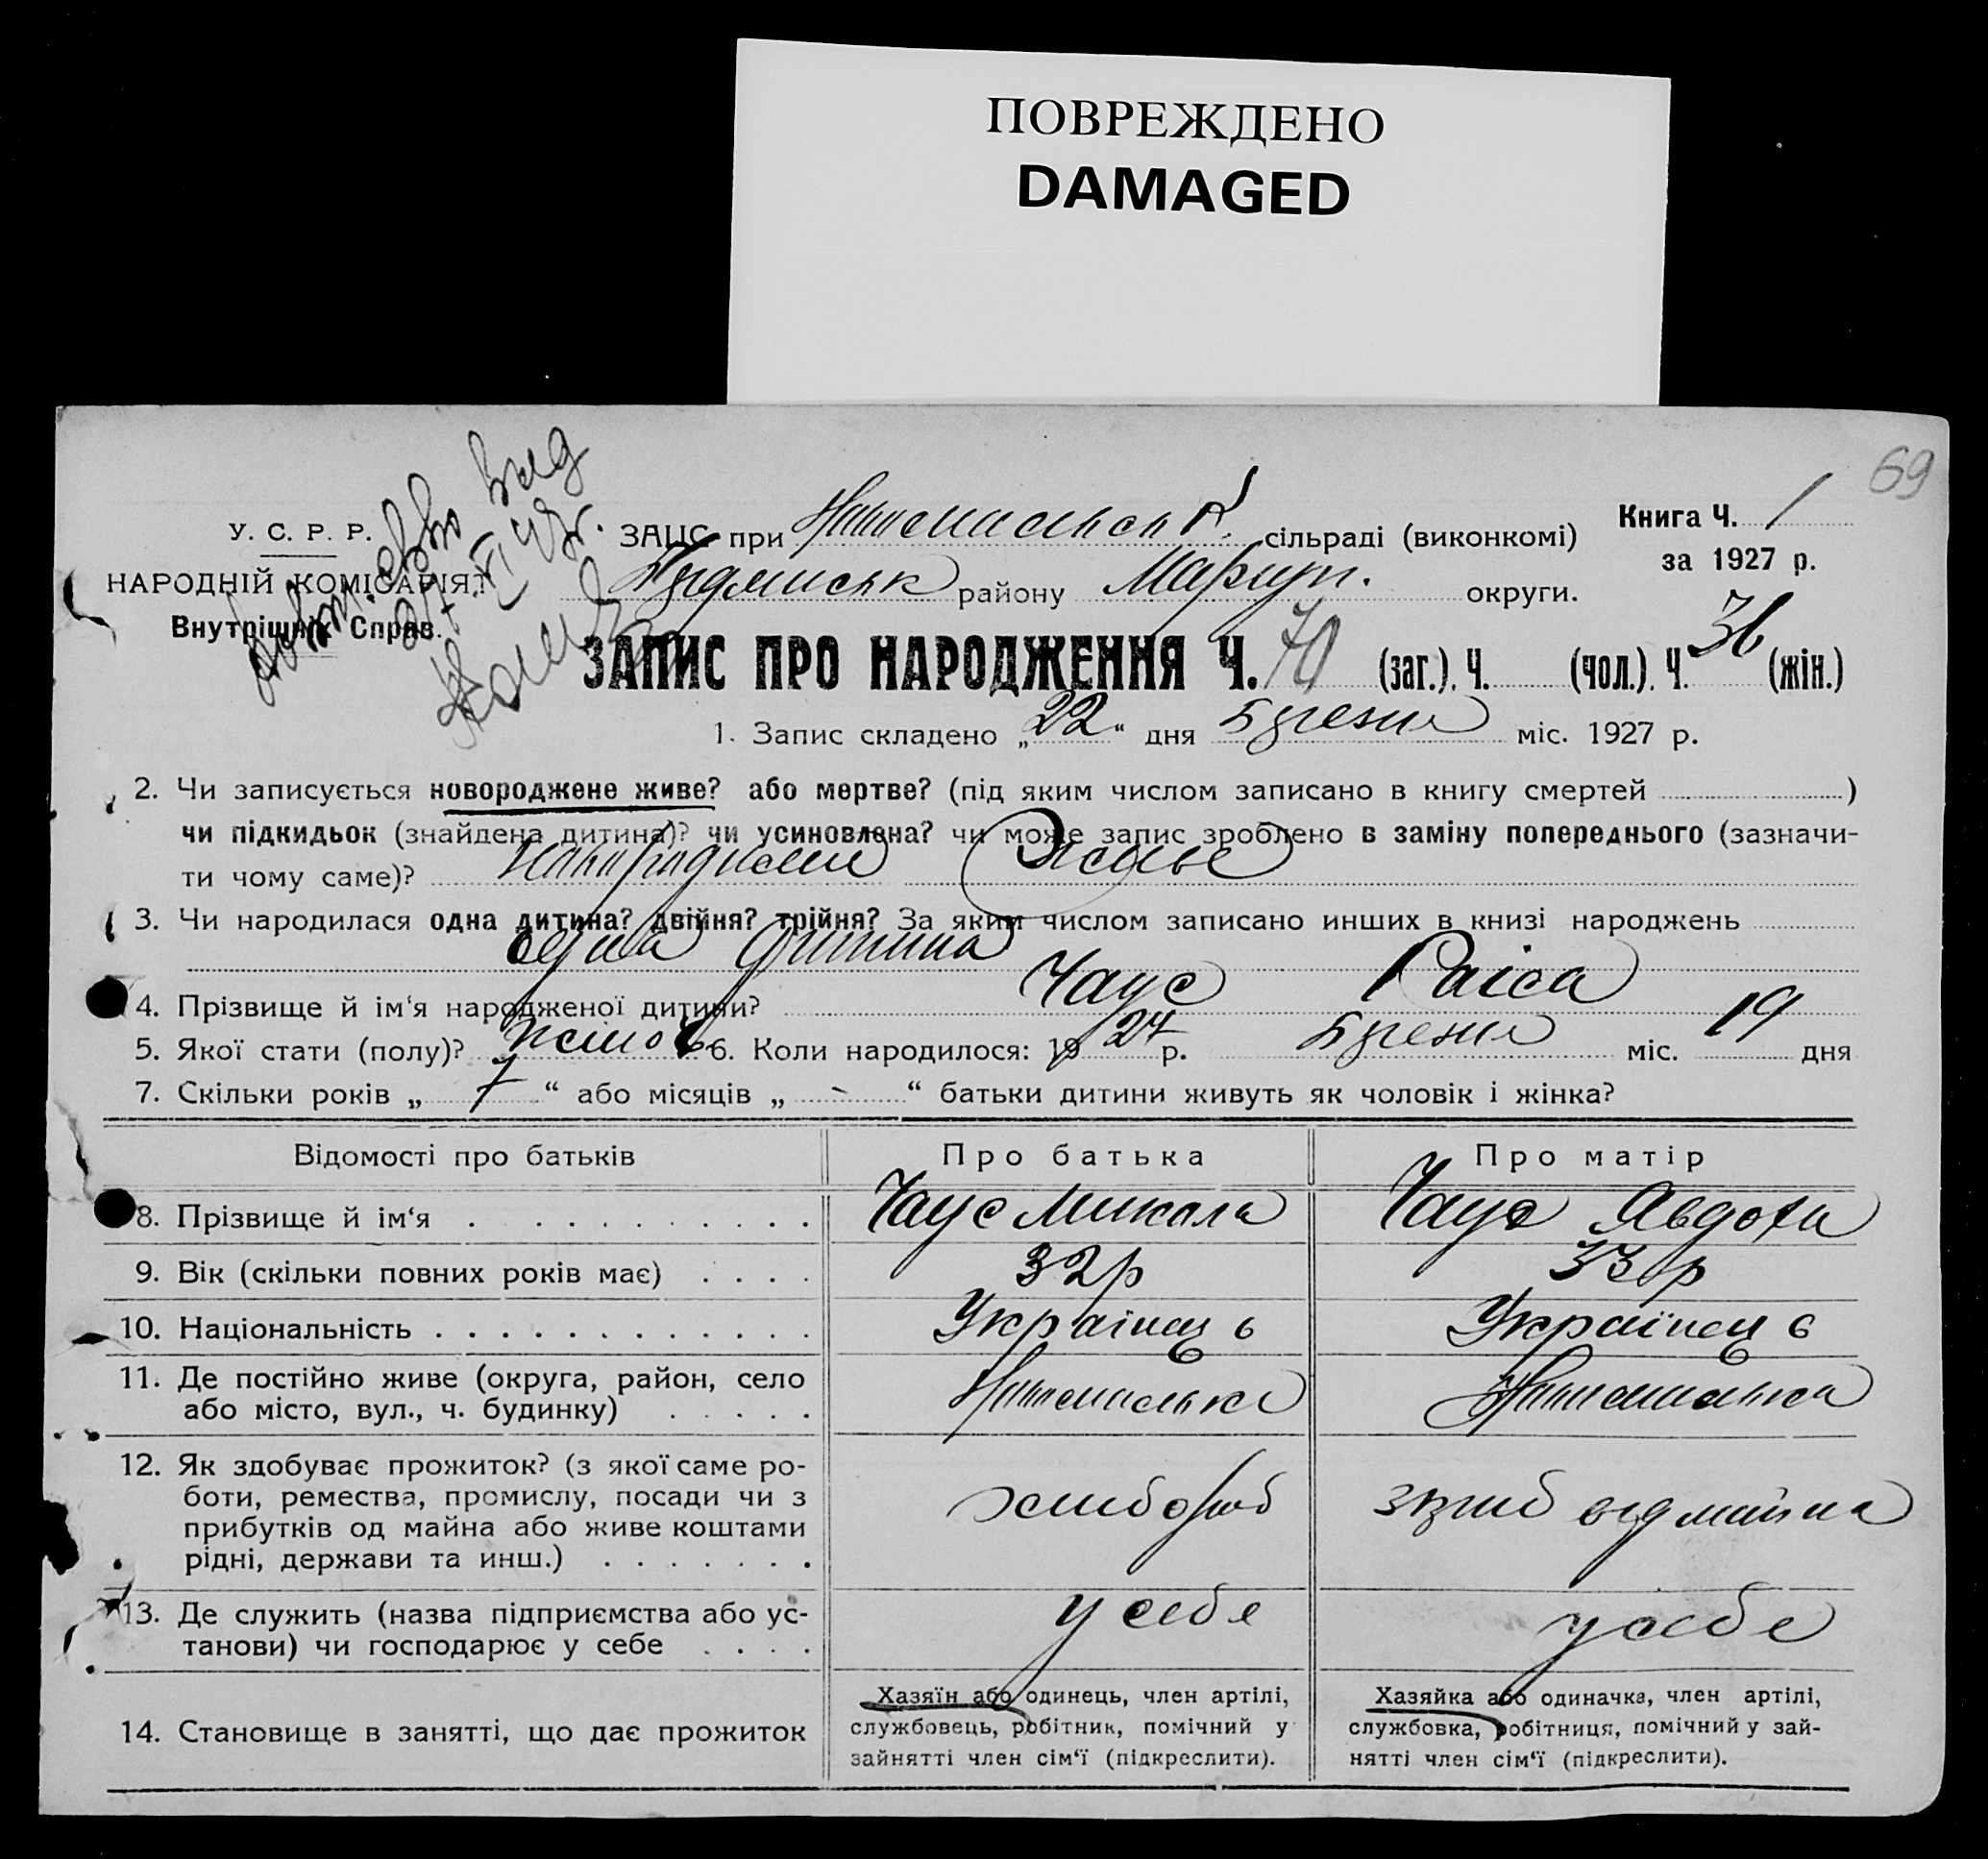 ПОВРЕЖДЕНО
DAMAGED
69
У. С. Р. Р.
НАРОДНІЙ КОМІСАРІЯТ
Внутрішніх Справ.
ЗАЦС при сільраді (виконкомі)
району Маріуп. округи.
Книга Ч. 1
за 1927 р.
ЗАПИС ПРО НАРОДЖЕННЯ Ч. 70 (заг.). Ч. (чол.). Ч. 36 (жін.)
1. Запис складено „22“ дня Березня міс. 1927 р.
2. Чи записується новороджене живе? або мертве? (під яким числом записано в книгу смертей )
чи підкидьок (знайдена дитина)? чи усиновлена? чи може запис зроблено в заміну попереднього (зазначи-
ти чому саме)? Живе
3. Чи народилася одна дитина? двійня? трійня? За яким числом записано инших в книзі народжень
одна дитина
4. Прізвище й ім‘я народженої дитини? Чаус Раіса
5. Якої стати (полу)? жіноч 6. Коли народилося: 1927 р. Березня міс. 19 дня
7. Скільки років „ 7 “ або місяців „ - “ батьки дитини живуть як чоловік і жінка?
Відомості про батьків Про батька Про матір
8. Прізвище й ім‘я Чаус Микола Чаус Явдоха
9. Вік (скільки повних років має) 32р 33р
10. Національність Українець Українець
11. Де постійно живе (округа, район, село
або місто, вул., ч. будинку)
12. Як здобуває прожиток? (з якої саме ро-
боти, ремества, промислу, посади чи з
прибутків од майна або живе коштами
рідні, держави та инш.) хлібороб
13. Де служить (назва підприємства або ус-
танови) чи господарює у себе у себе у себе
14. Становище в занятті, що дає прожиток
Хазяїн або одинець, член артілі,
службовець, робітник, помічний у
зайнятті член сім‘ї (підкреслити).
Хазяйка або одиначка, член артілі,
службовка, робітниця, помічний у зай-
нятті член сім‘ї (підкреслити).